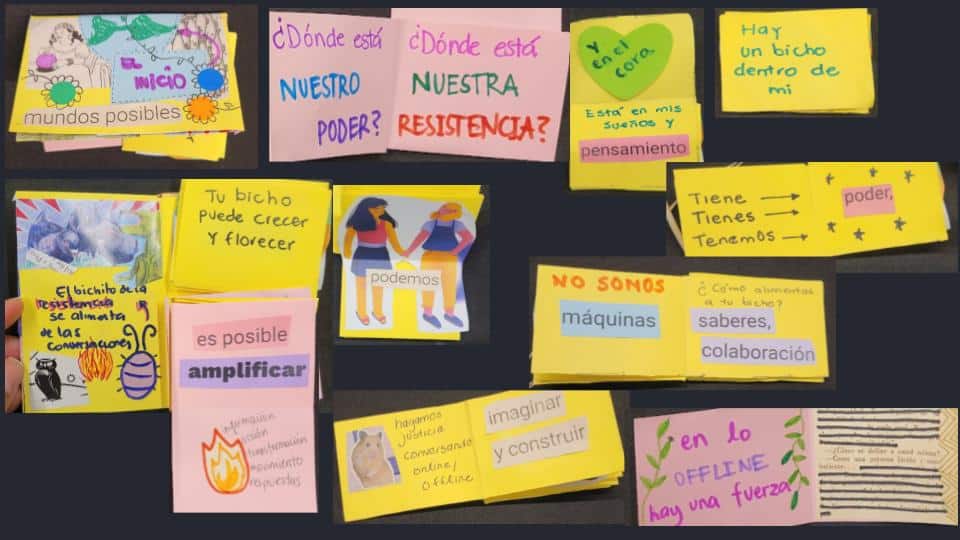 EL
INICIO
mundos posibles
¿Dónde está
NUESTRO
PODER?
¿Dónde está
NUESTRA
RESISTENCIA?
y
en el
cora
Está en mis
sueños y
pensamiento
Hay
un bicho
dentro de
mi
El bichito de la
resistencia
se alimenta
de las
conversaciones
Tu bicho
puede crecer
y florecer
es posible
amplificar
información
acción
transformación
movimiento
respuestas
podemos
Tiene
Tienes
Tenemos
poder,
NO SOMOS
máquinas
¿Cómo alimentas
a tu bicho?
saberes,
colaboración
hagamos
justicia
conversando
online/
offline
imaginar
y construir
en lo
OFFLINE
hay una fuerza